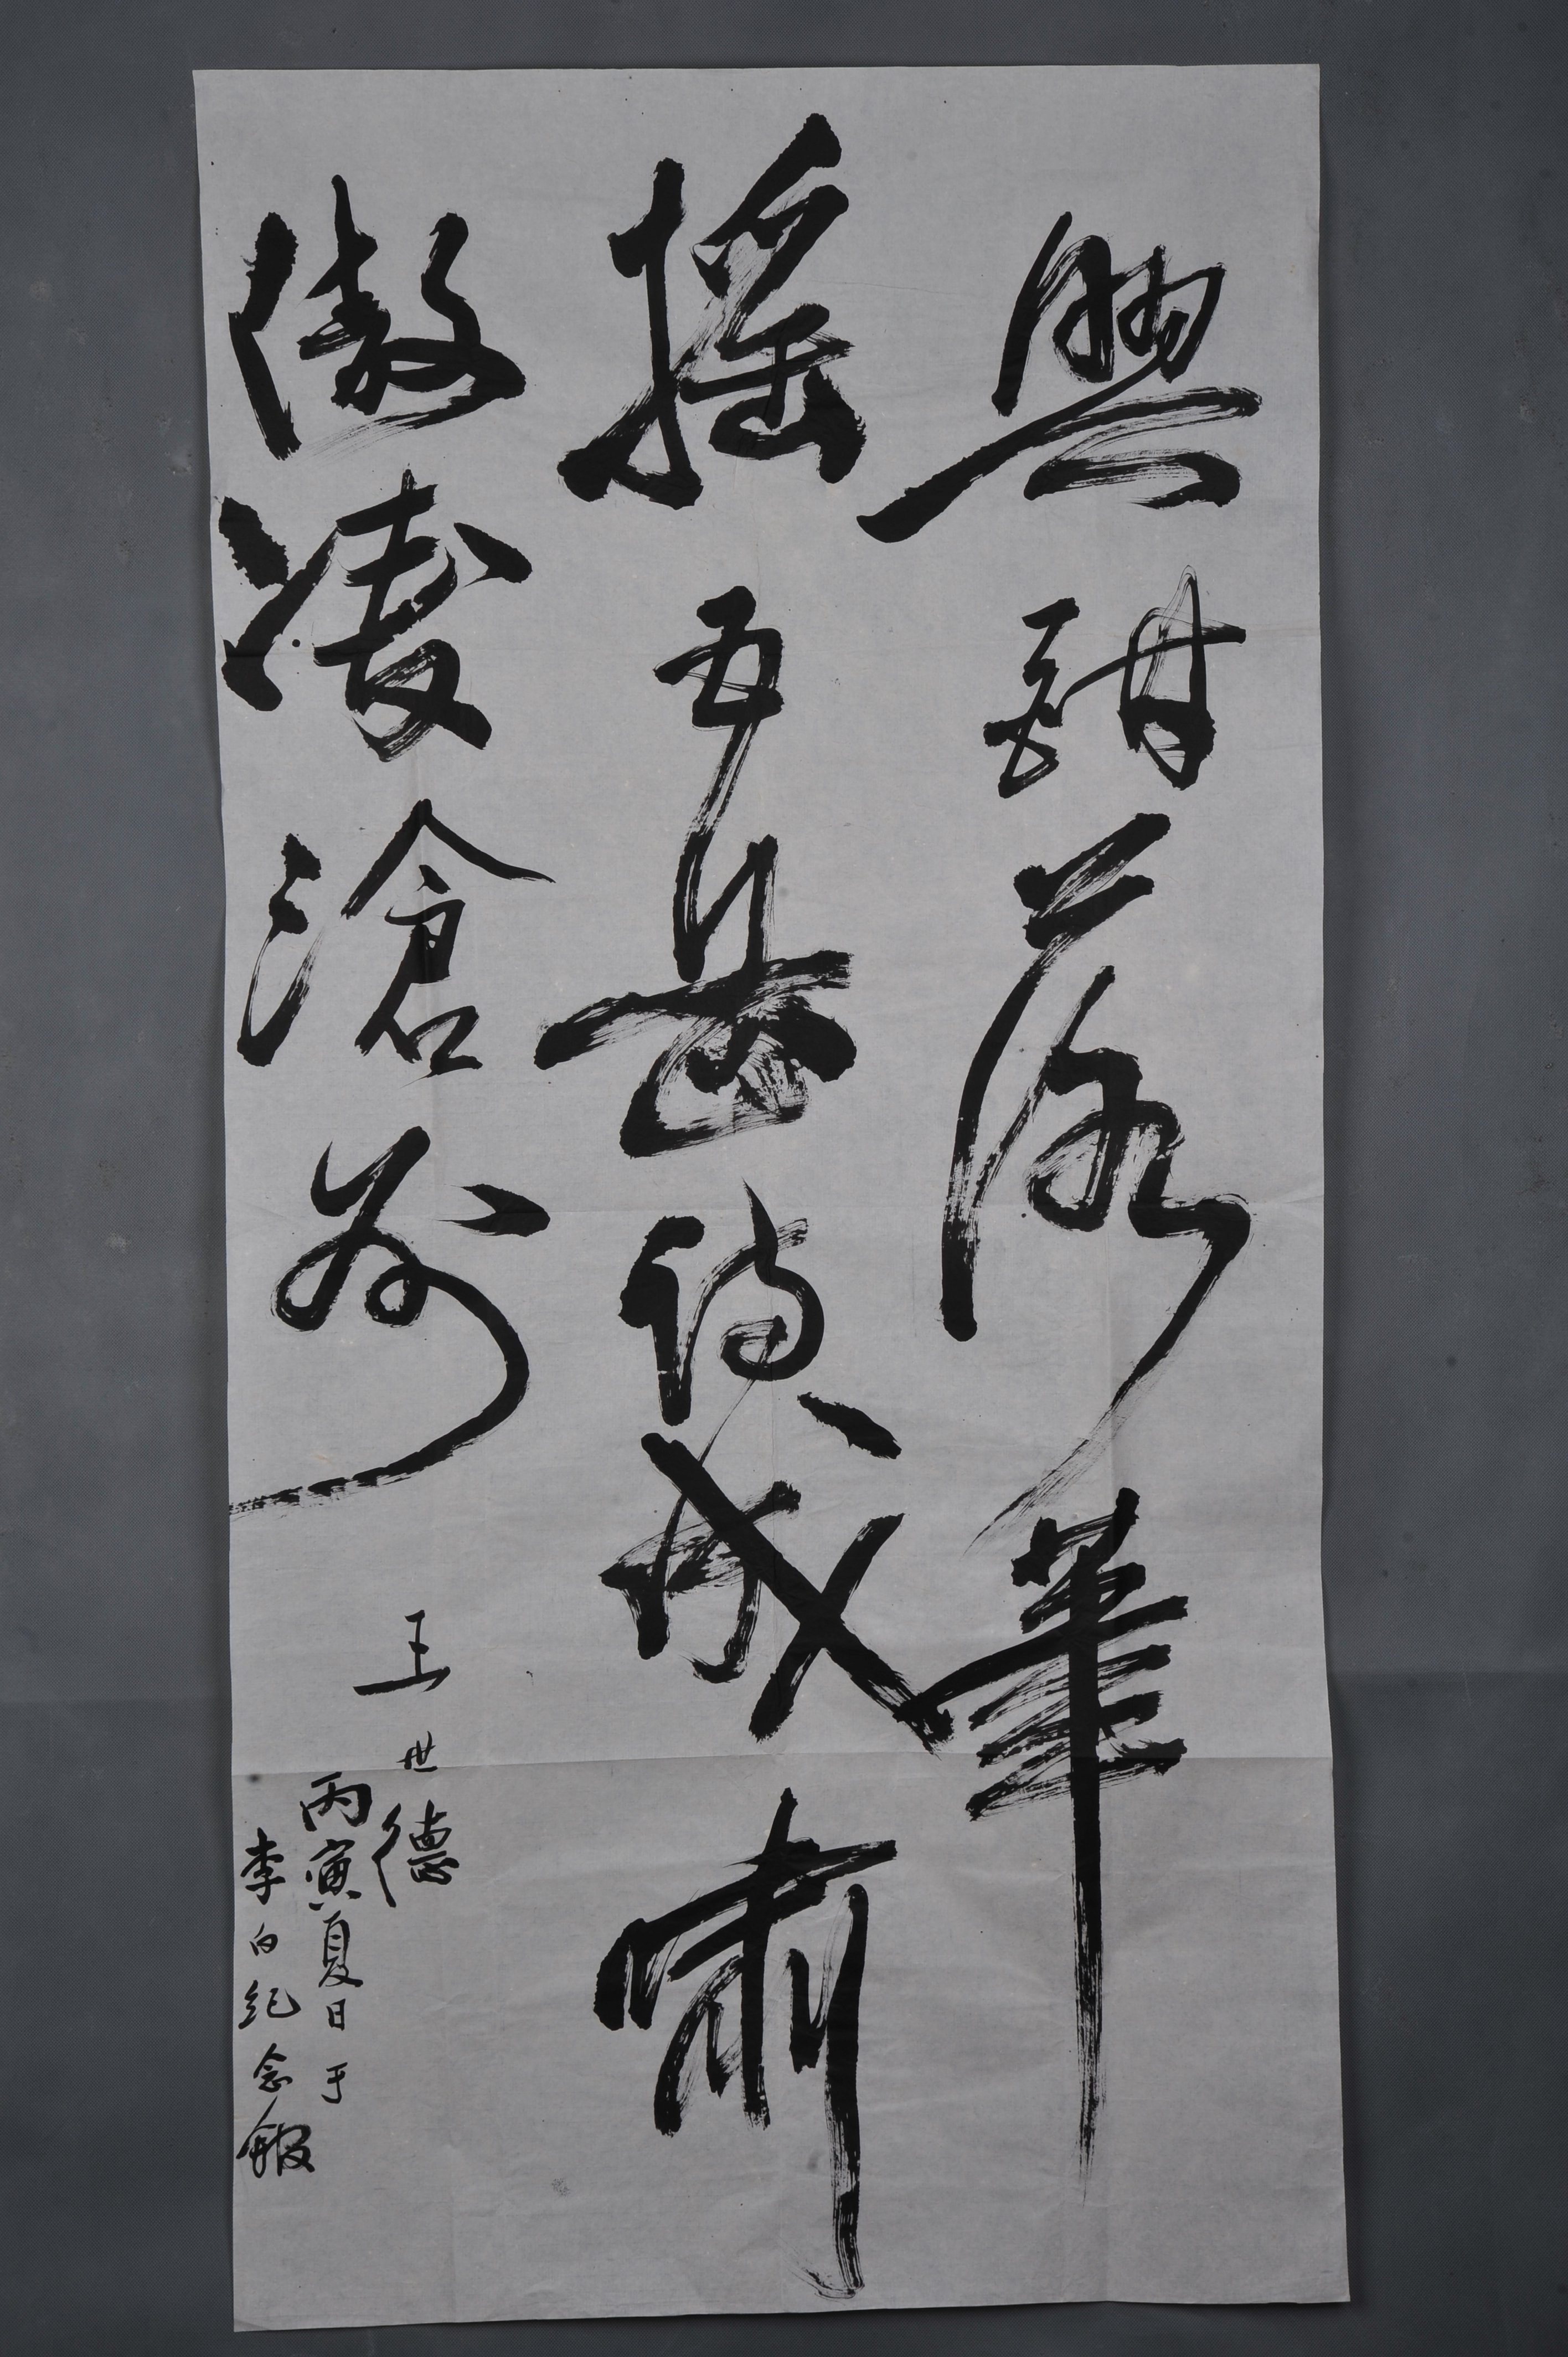 興酣落筆
摇五岳詩成嘯
傲凌滄州
王世德
丙寅夏日于
李白纪念館